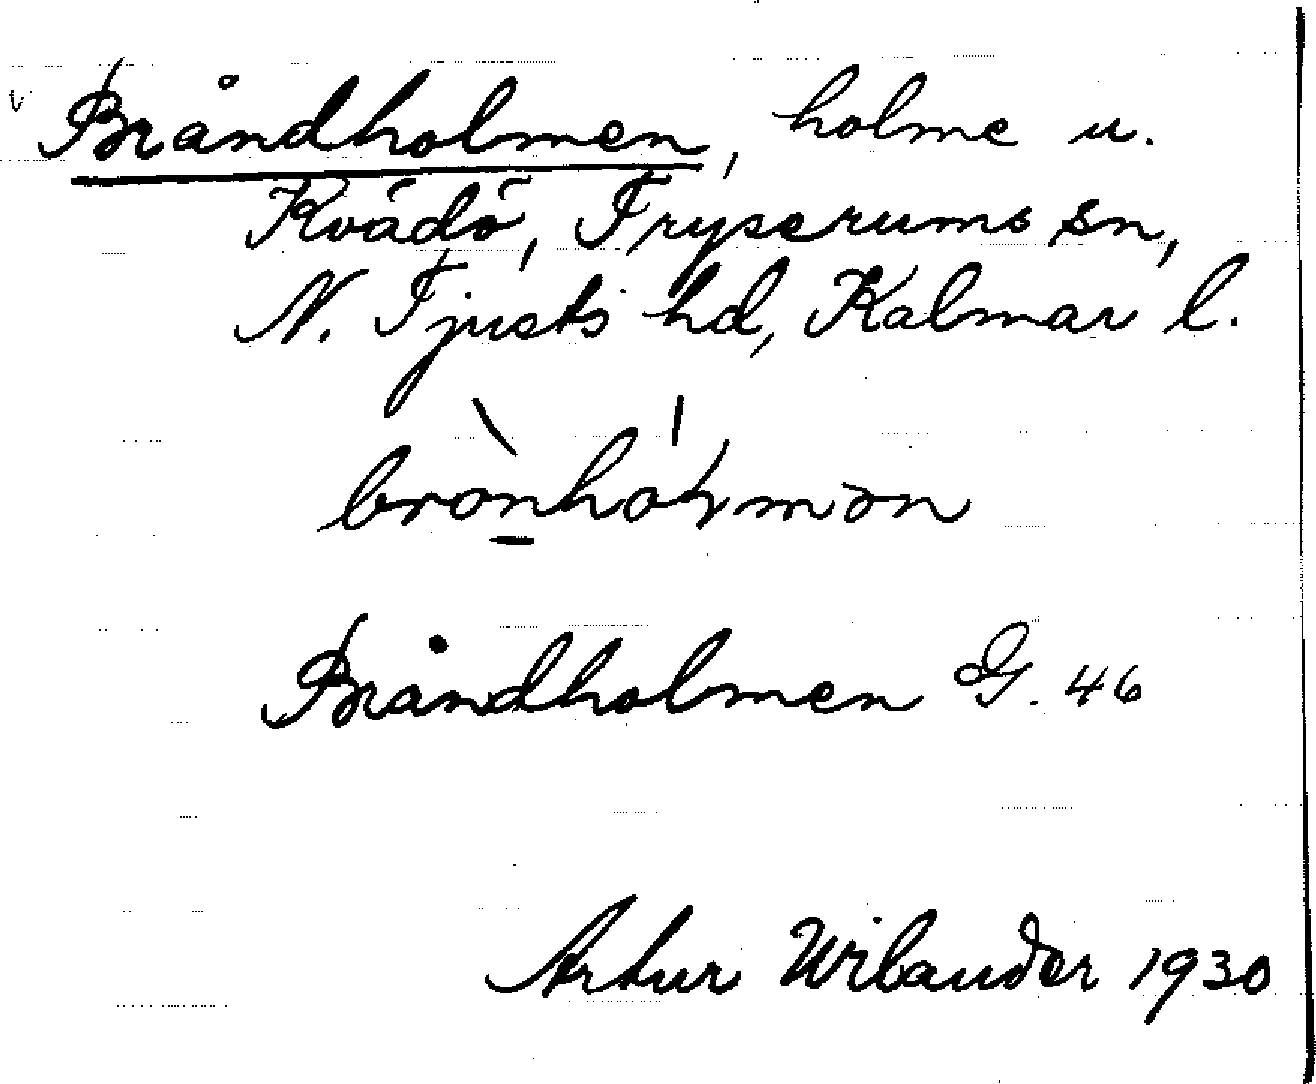 v Bråndholmen, holme u.
Kvädö, Tryserums sn,
N. Tjusts hd, Kalmar l.
brònhóɫmən
Bråndholmen G. 46
Artur Wilander 1930